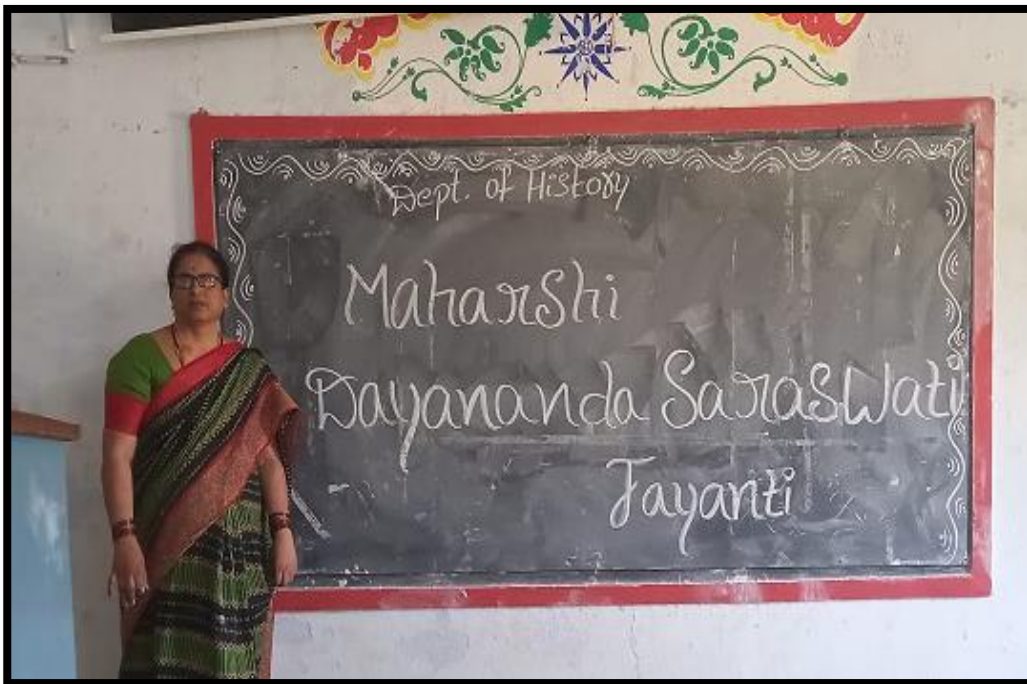 Dept. of History
Maharshi
Dayananda Saraswati
Jayanti